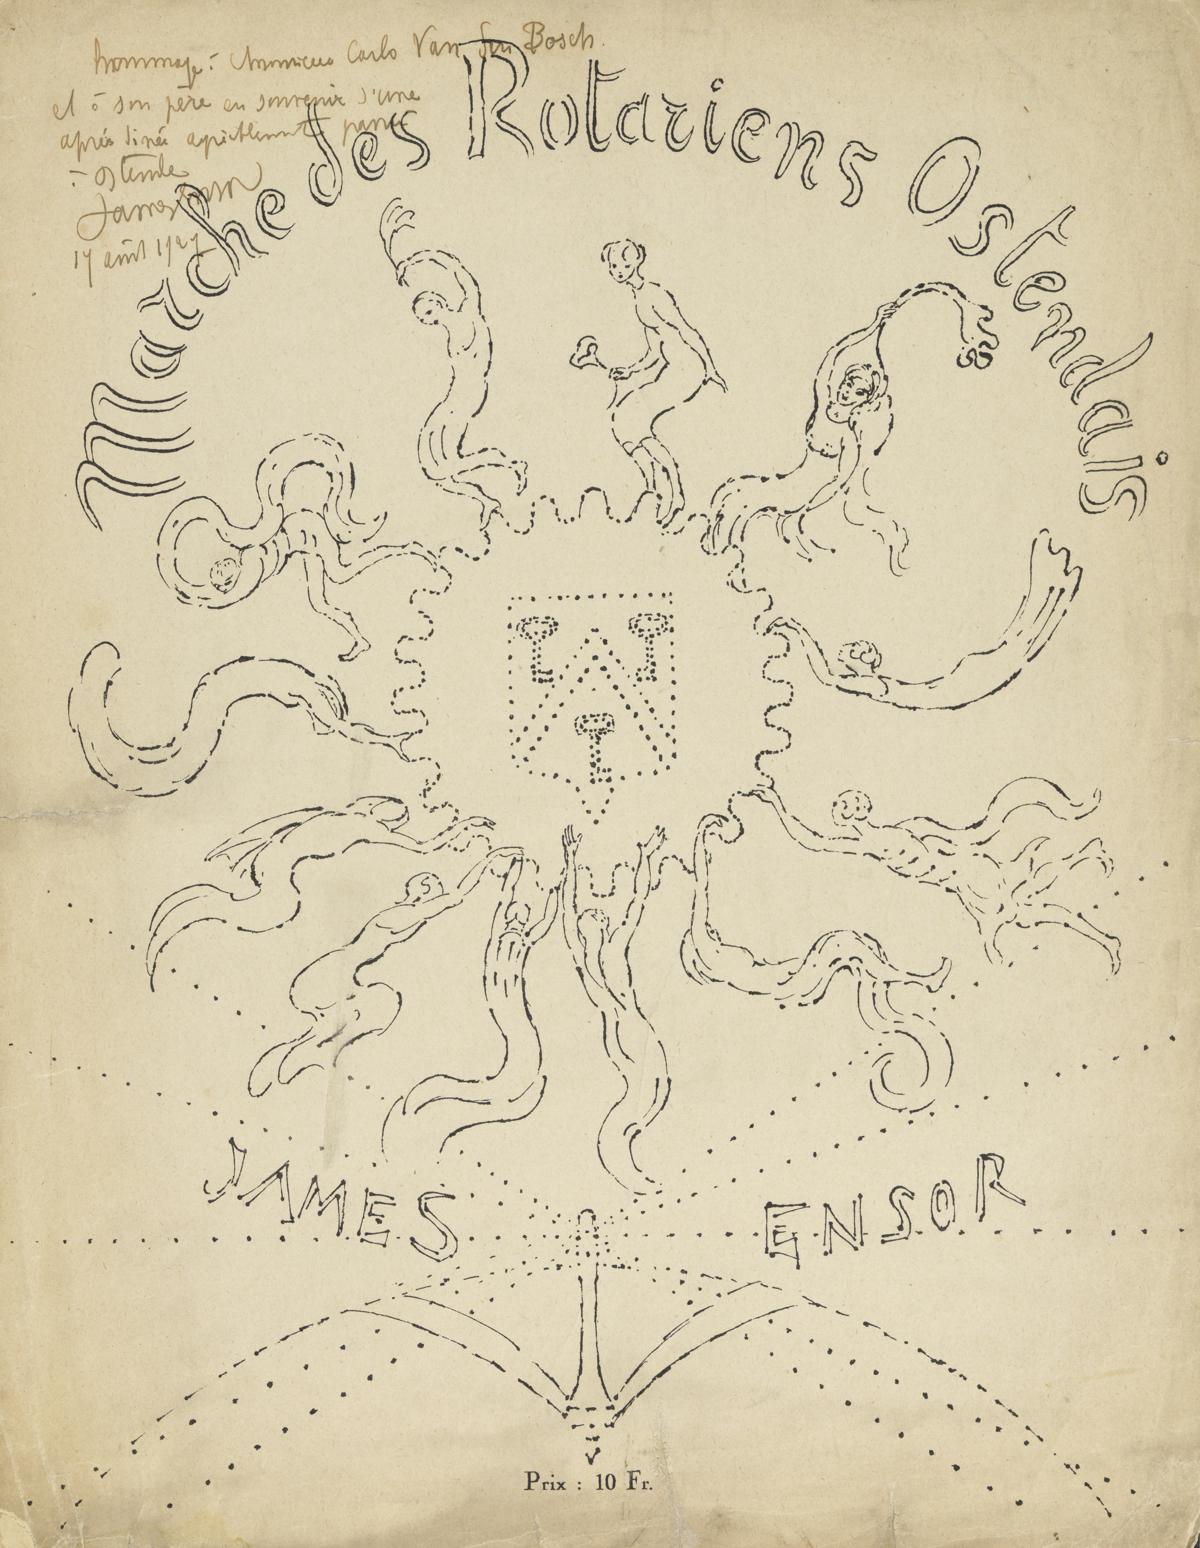 hommage à Monsieur Carlo Van den Bosch.
et à son père en souvenir d'une
après dinée agréablement passée
à Ostende
James Ensor
17 août 19
Marche des Rotariens Ostendais
JAMES ENSOR
Prix : 10 Fr.